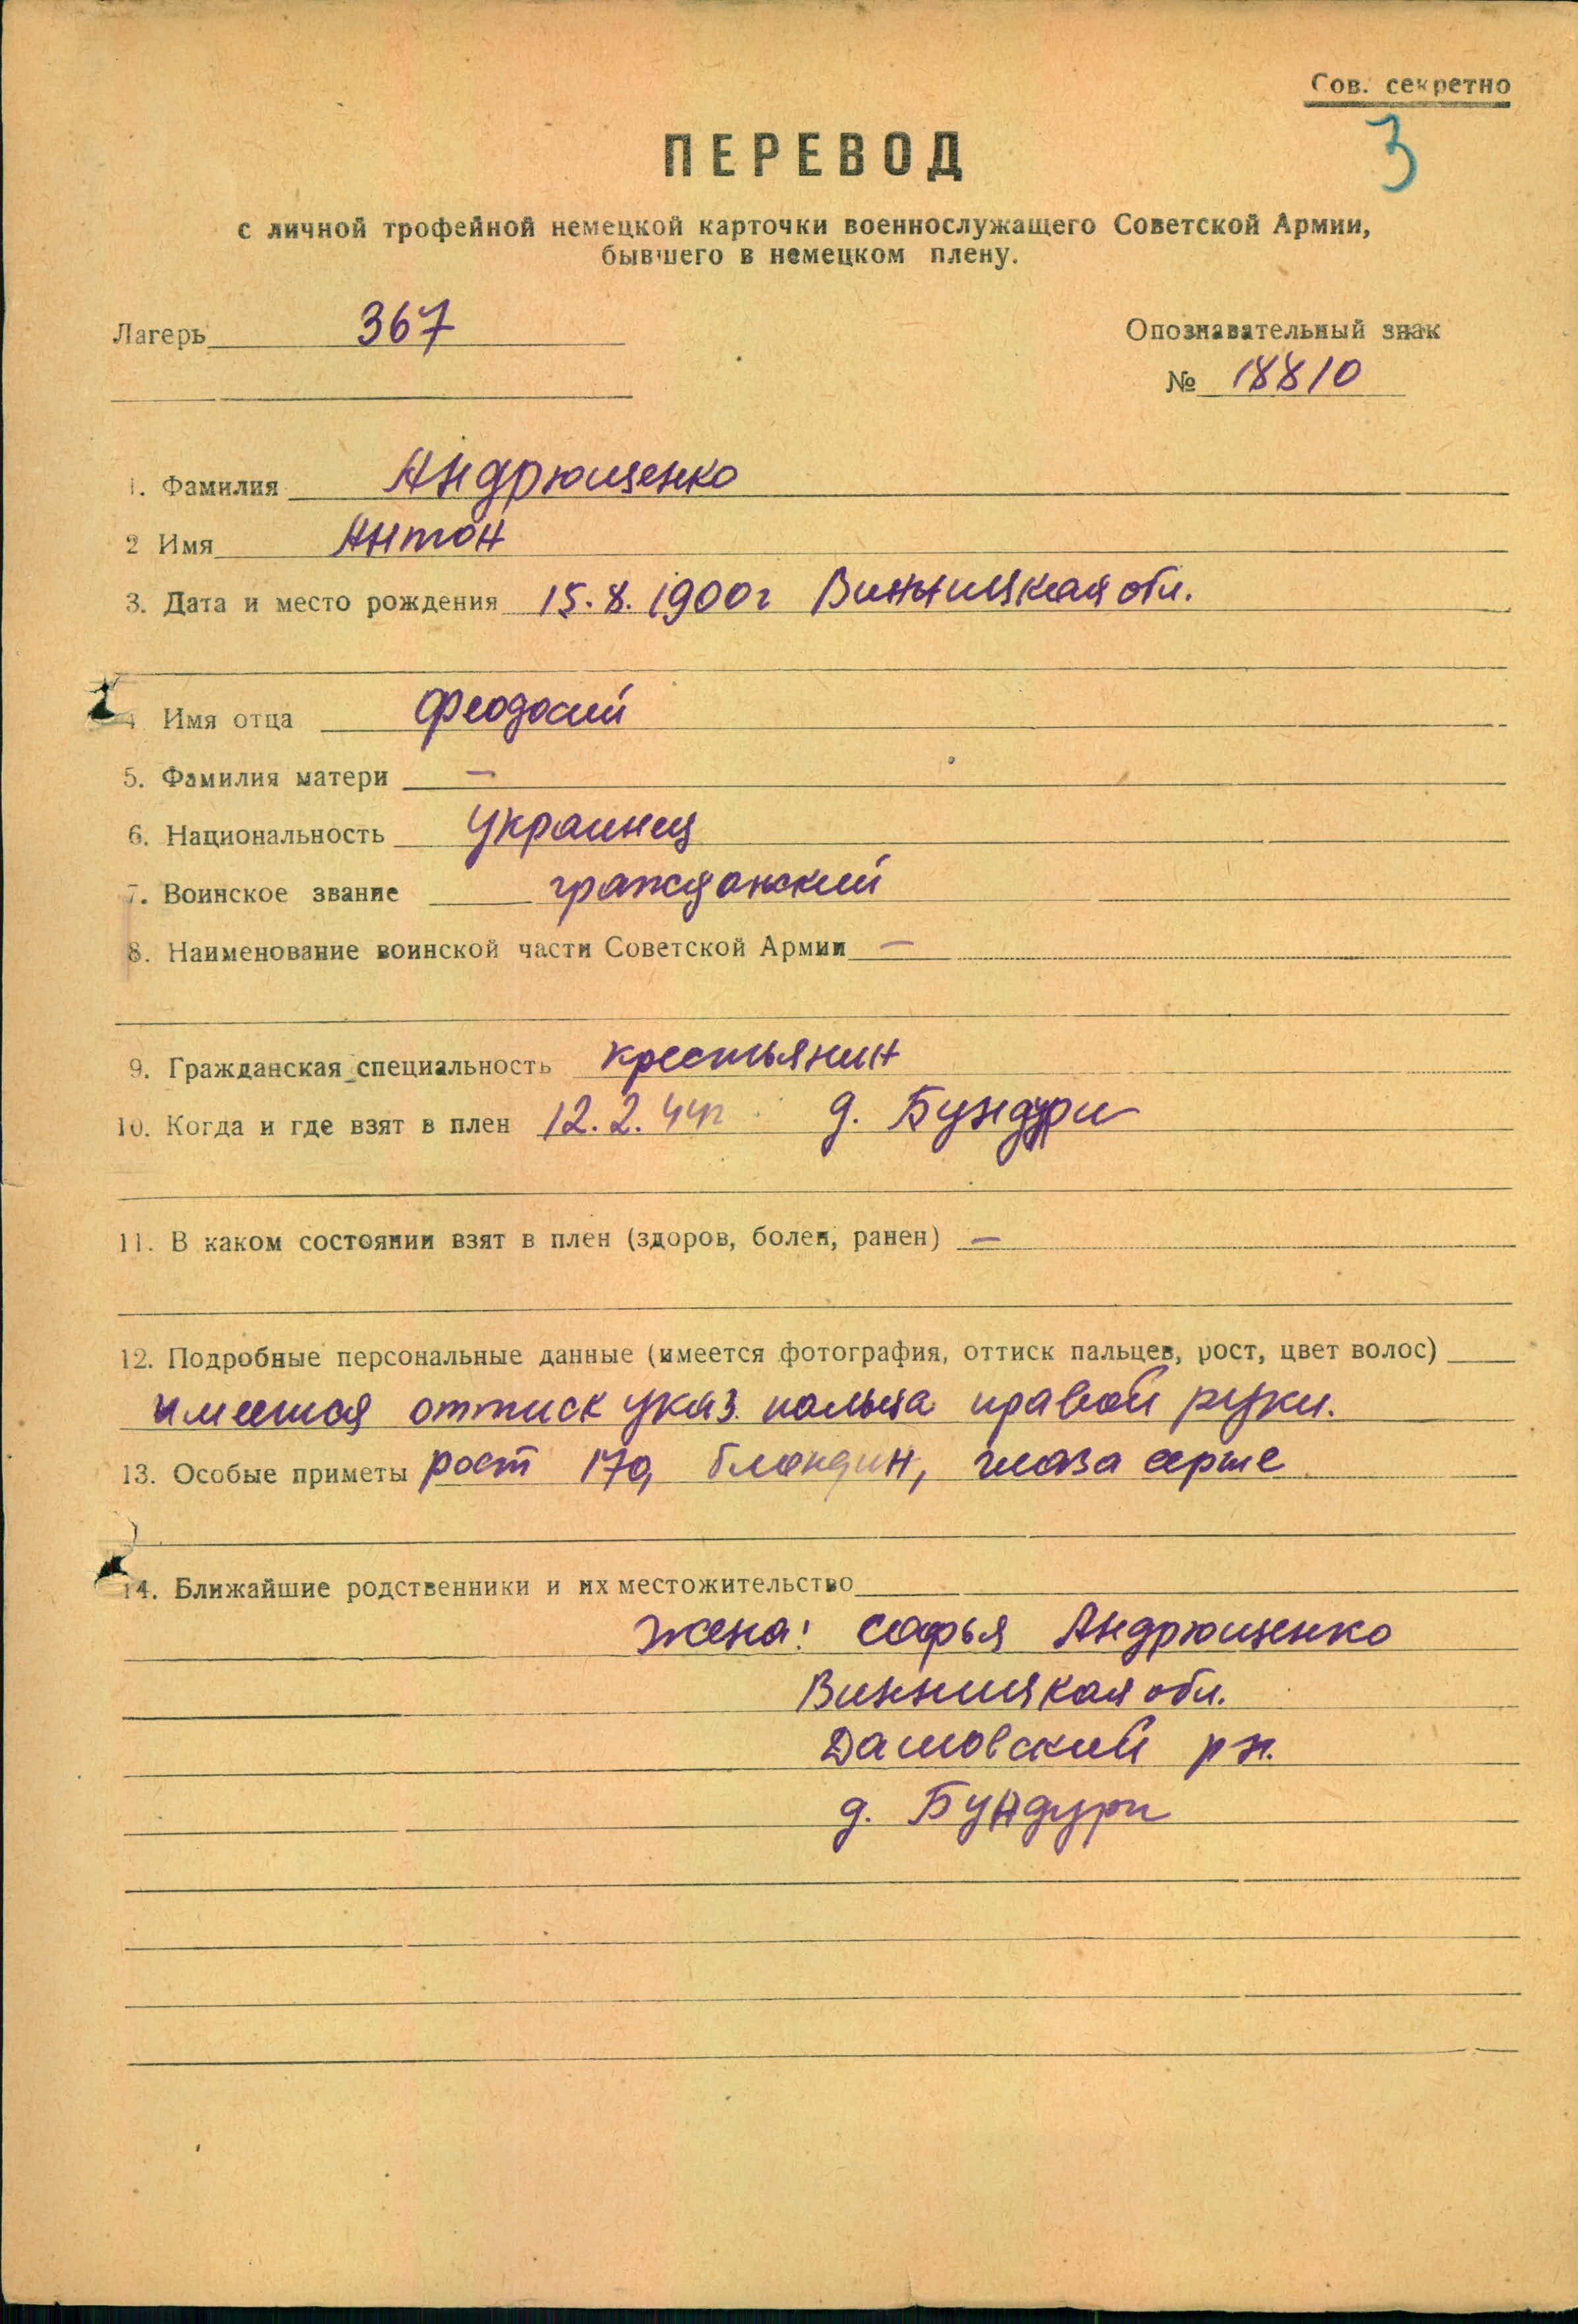 Сов. секретно
3
ПЕРЕВОД
с личной трофейной немецкой карточки военнослужащего Советской Армии,
бывшего в немецком плену.
Лагерь 367
Опознавательный знак
№ 18810
1. Фамилия Андрющенко
2 Имя Антон
3. Дата и место рождения 15.8.1900г Винницкая обл.
4 Имя отца Феодосий
5. Фамилия матери —
6. Национальность украинец
7. Воинское звание гражданский
8. Наименование воинской части Советской Армии —
9. Гражданская специальность крестьянин
10. Когда и где взят в плен 12.2.44г д. Бундури
11. В каком состоянии взят в плен (здоров, болен, ранен) —
12. Подробные персональные данные (имеется фотография, оттиск пальцев, рост, цвет волос)
имеется оттиск указ. пальца правой руки.
13. Особые приметы рост 170, блондин, глаза серые
14. Ближайшие родственники и их местожительство
жена: Софья Андрющенко
Винницкая обл.
Дашовский рн.
д. Бундури